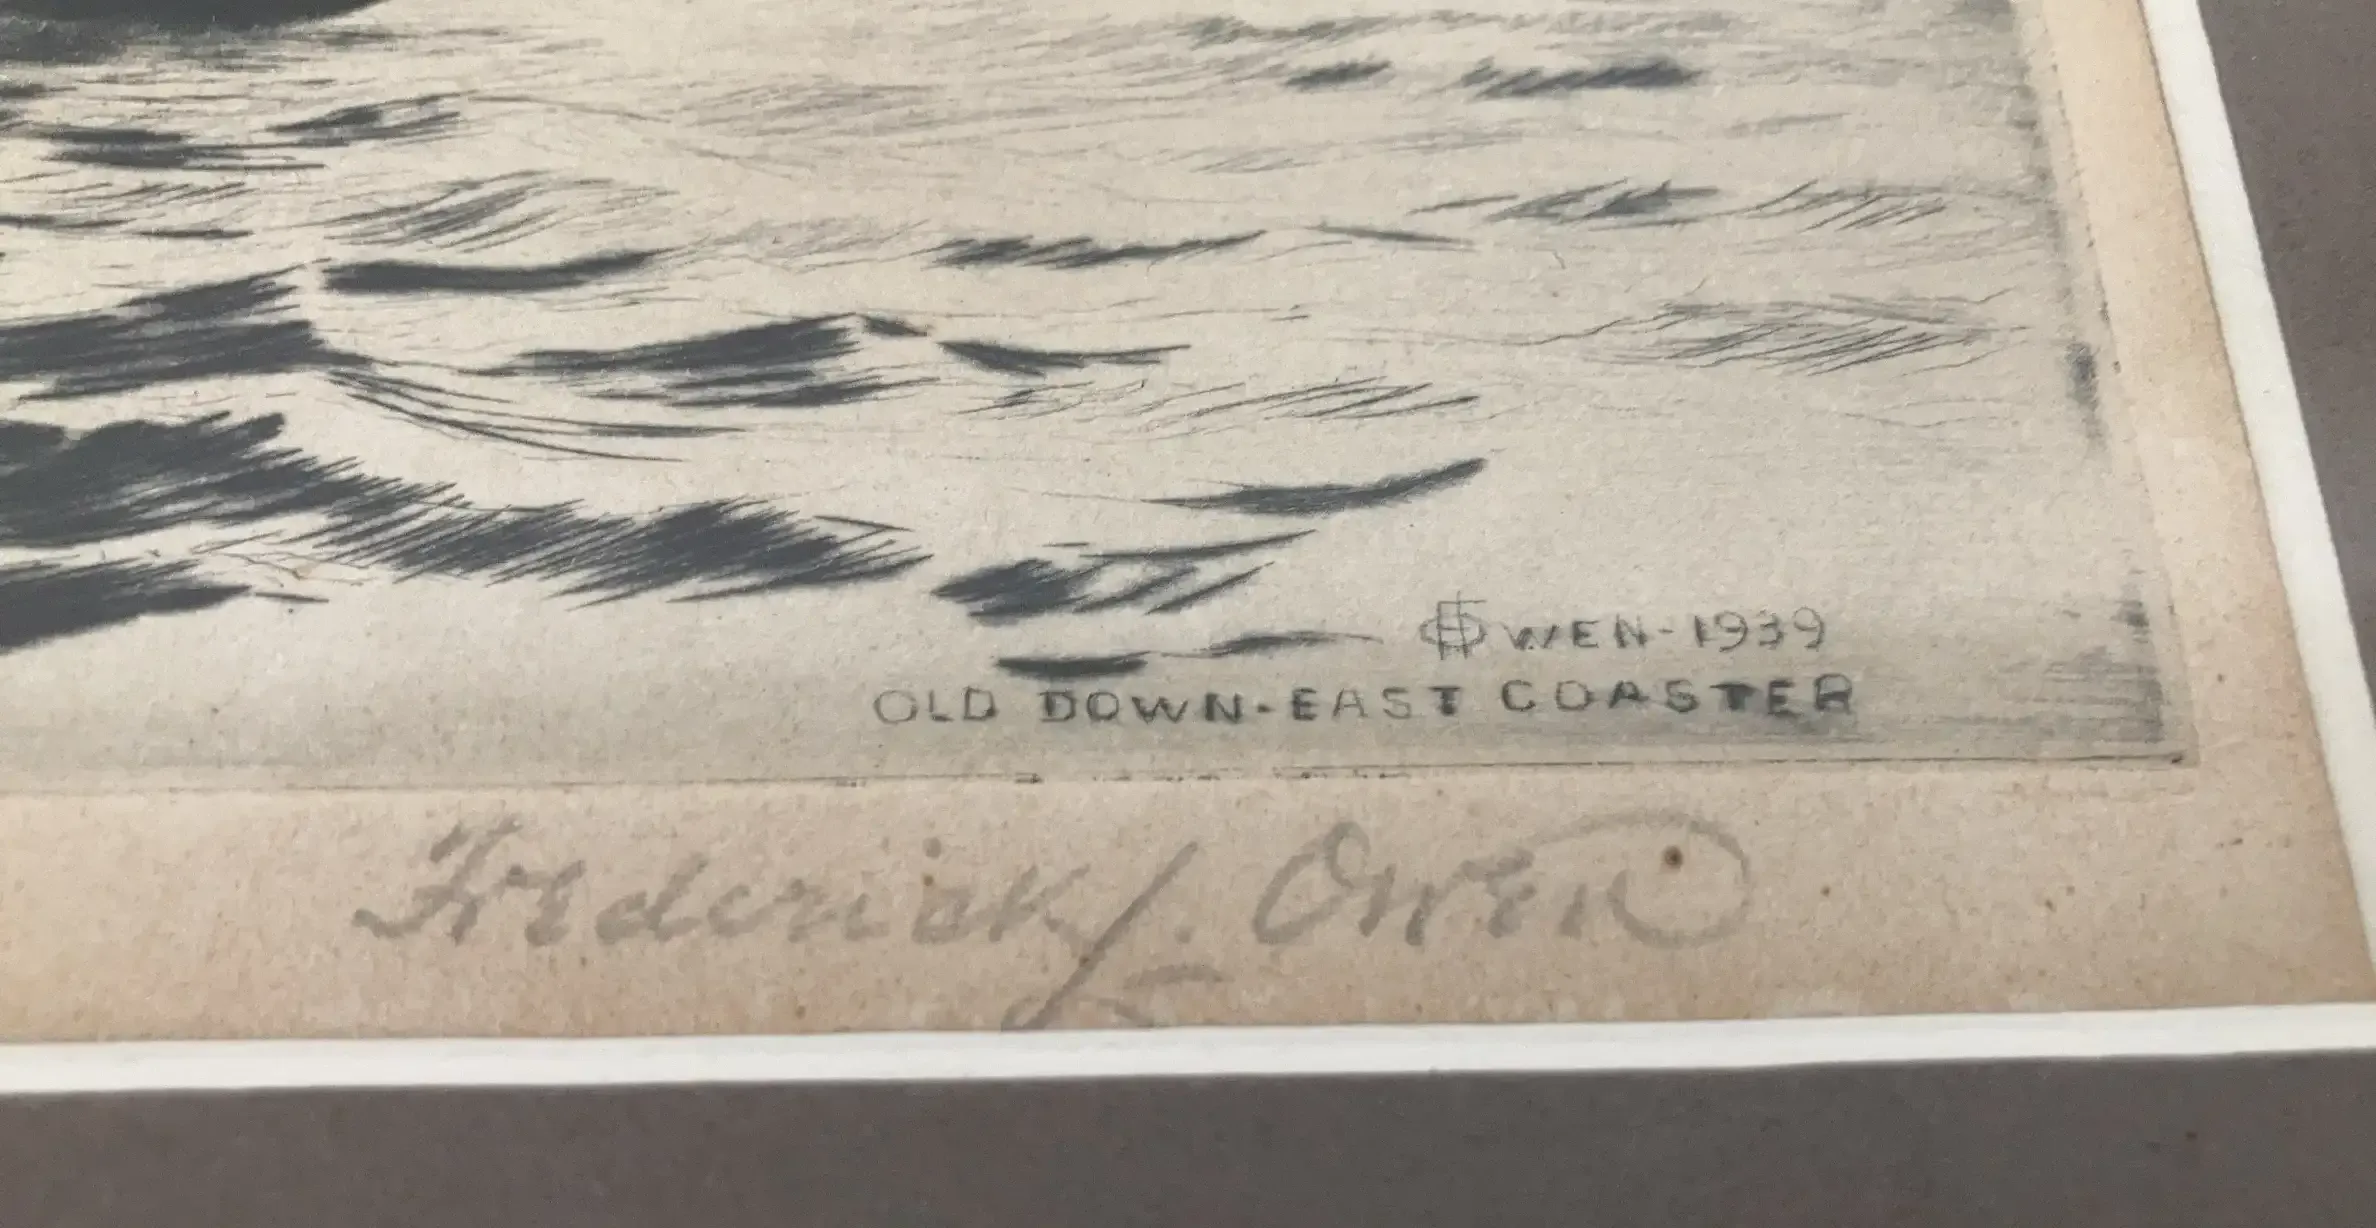 OWEN-1939
OLD DOWN-EAST COASTER
Frederick J. Owen